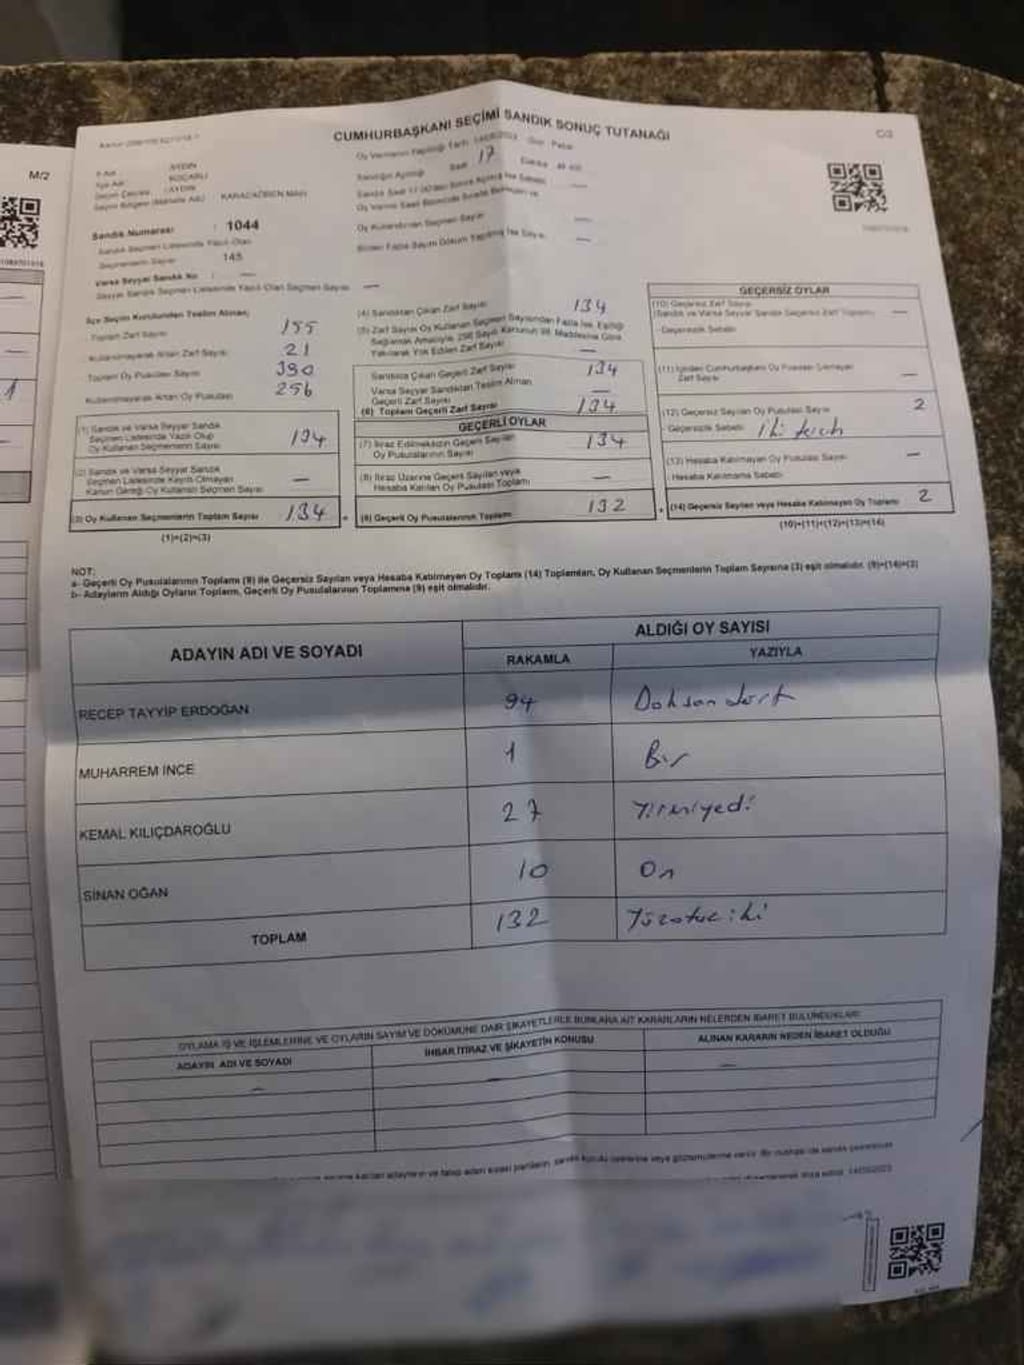 M/2
CUMHURBAŞKANI SEÇİMİ SANDIK SONUÇ TUTANAĞI
C/3
Oy Vermenin Yapıldığı Tarih: 14/05/2023 Gün: Pazar
İl Adı : AYDIN
İlçe Adı : KOÇARLI
Seçim Çevresi : AYDIN
Seçim Bölgesi (Mahalle Adı) : KARACAÖREN MAH.
Sandığın Açıldığı Saat 17
Sandık Numarası : 1044
Sandık Seçmen Listesinde Yazılı Olan
Seçmenlerin Sayısı : 145
Oy Kullandırılan Seçmen Sayısı —
Birden Fazla Sayım Döküm Yapılmış İse Sayısı —
Varsa Seyyar Sandık No : —
Seyyar Sandık Seçmen Listesinde Yazılı Olan Seçmen Sayısı —
İlçe Seçim Kurulundan Teslim Alınan;
Toplam Zarf Sayısı 155
Kullanılmayarak Artan Zarf Sayısı 21
Toplam Oy Pusulası Sayısı 390
Kullanılmayarak Artan Oy Pusulası 256
(1) Sandık ve Varsa Seyyar Sandık
Seçmen Listesinde Yazılı Olup
Oy Kullanan Seçmenlerin Sayısı 134
(2) Sandık ve Varsa Seyyar Sandık
Seçmen Listesinde Kayıtlı Olmayan
Kanun Gereği Oy Kullanan Seçmen Sayısı —
(3) Oy Kullanan Seçmenlerin Toplam Sayısı 134
(1)+(2)=(3)
(4) Sandıktan Çıkan Zarf Sayısı 134
(5) Zarf Sayısı Oy Kullanan Seçmen Sayısından Fazla İse, Eşitliği
Sağlamak Amacıyla, 298 Sayılı Kanunun 98. Maddesine Göre
Yakılarak Yok Edilen Zarf Sayısı —
Sandıkta Çıkan Geçerli Zarf Sayısı 134
Varsa Seyyar Sandıktan Teslim Alınan
Geçerli Zarf Sayısı —
(6) Toplam Geçerli Zarf Sayısı 134
GEÇERLİ OYLAR
(7) İtiraz Edilmeksizin Geçerli Sayılan
Oy Pusulalarının Sayısı 134
(8) İtiraz Üzerine Geçerli Sayılan veya
Hesaba Katılan Oy Pusulası Toplamı —
(9) Geçerli Oy Pusulalarının Toplamı 132
GEÇERSİZ OYLAR
(10) Geçersiz Zarf Sayısı
(Sandık ve Varsa Seyyar Sandık Geçersiz Zarf Toplamı) —
Geçersizlik Sebebi:
(11) İçinden Cumhurbaşkanı Oy Pusulası Çıkmayan
Zarf Sayısı —
(12) Geçersiz Sayılan Oy Pusulası Sayısı 2
Geçersizlik Sebebi:
(13) Hesaba Katılmayan Oy Pusulası Sayısı —
Hesaba Katılmama Sebebi:
(14) Geçersiz Sayılan veya Hesaba Katılmayan Oy Toplamı 2
(10)+(11)+(12)+(13)=(14)
NOT:
a- Geçerli Oy Pusulalarının Toplamı (9) ile Geçersiz Sayılan veya Hesaba Katılmayan Oy Toplamı (14) Toplamları, Oy Kullanan Seçmenlerin Toplam Sayısına (3) eşit olmalıdır. (9)+(14)=(3)
b- Adayların Aldığı Oyların Toplamı, Geçerli Oy Pusulalarının Toplamına (9) eşit olmalıdır.
ADAYIN ADI VE SOYADI
ALDIĞI OY SAYISI
RAKAMLA YAZIYLA
RECEP TAYYİP ERDOĞAN 94 Doksan dört
MUHARREM İNCE 1 Bir
KEMAL KILIÇDAROĞLU 27 Yirmiyedi
SİNAN OĞAN 10 On
TOPLAM 132 Yüzotuziki
OYLAMA İŞ VE İŞLEMLERİNE VE OYLARIN SAYIM VE DÖKÜMÜNE DAİR ŞİKAYETLERLE BUNLARA AİT KARARLARIN NELERDEN İBARET BULUNDUKLARI
ADAYIN ADI VE SOYADI İHBAR İTİRAZ VE ŞİKAYETİN KONUSU ALINAN KARARIN NEDEN İBARET OLDUĞU
— — —